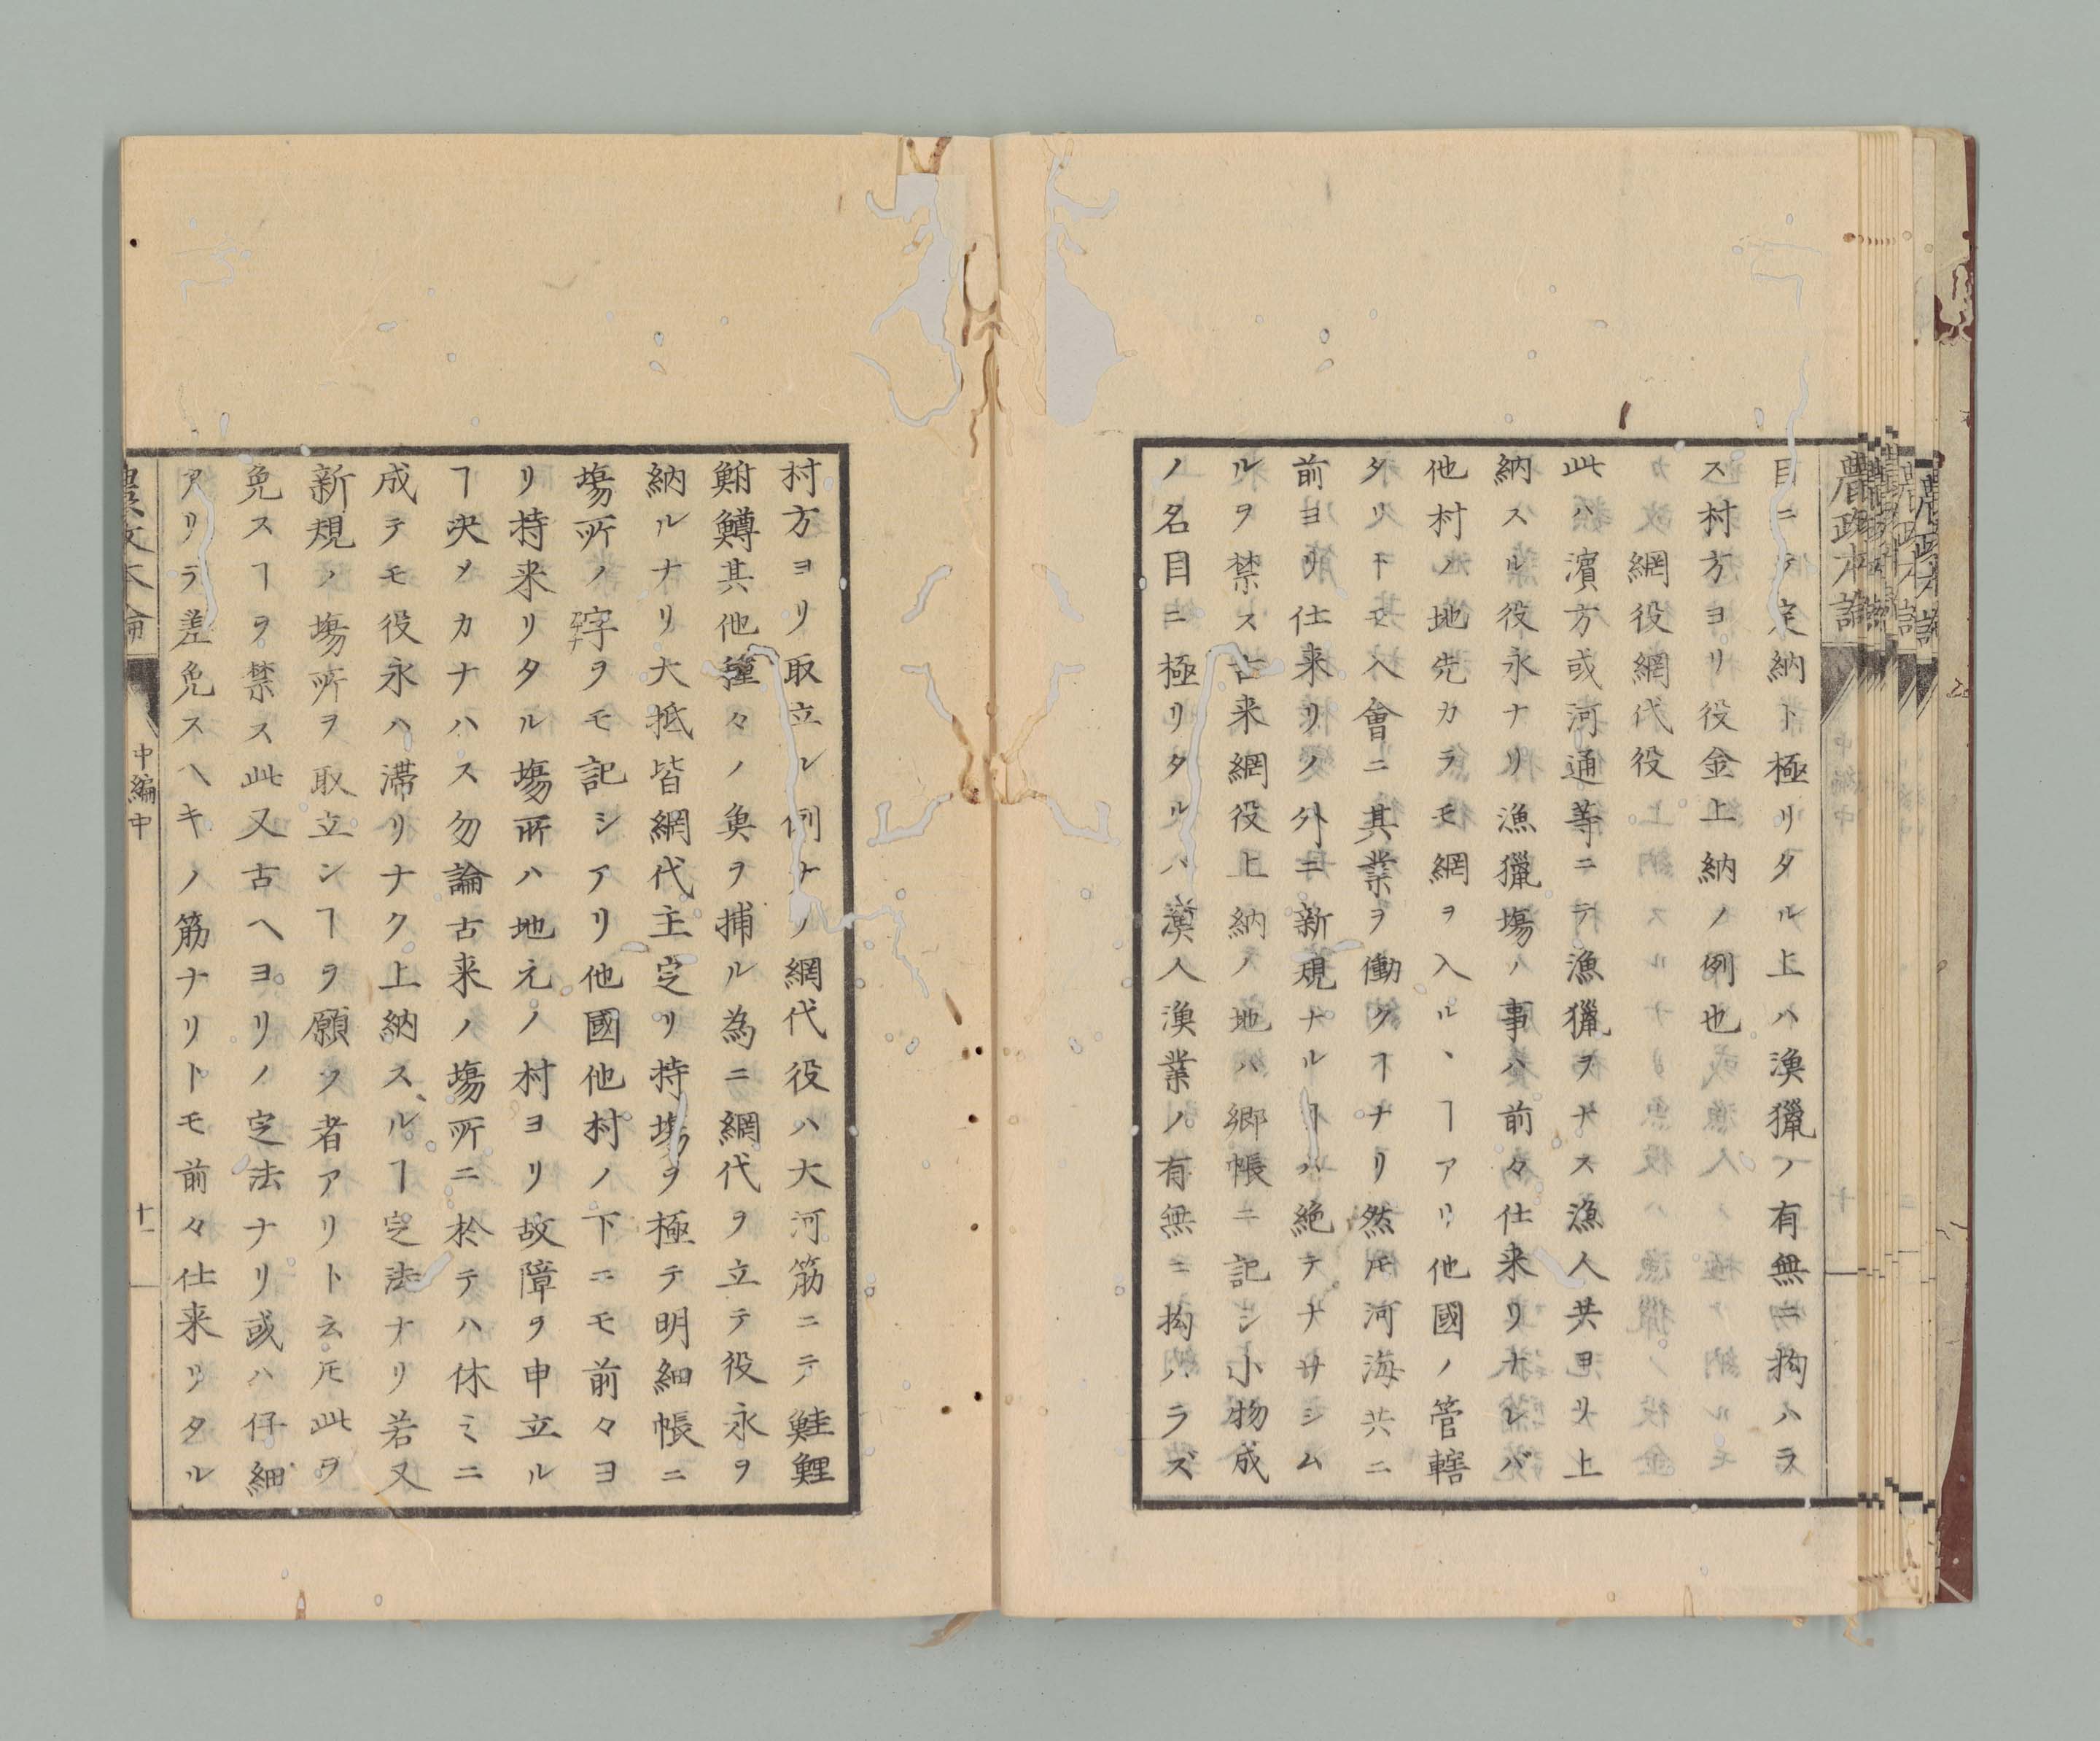 目ニテ定納ト極リタル上ハ漁獵ノ有無ニ拘ハラ
ス村方ヨリ役金上納ノ例也
網役網代役
此ハ濱方或河通等ニテ漁獵ヲナス漁人共ヨリ上
納スル役永ナリ漁獵塲ノ事ハ前々仕来リナレバ
他村ノ地先カラモ網ヲ入ルヽヿアリ他國ノ管轄
タリ𪜈入會ニ其業ヲ働クヿナリ然𪜈河海共ニ
前ヨリ仕来リノ外ニ新規ナルヿハ絶テナサシム
ルヲ禁ス古来網役上納ノ地ハ郷帳ニ記シ小物成
ノ名目ニ極リタルハ漁人漁業ノ有無ニ拘ハラズ
村方ヨリ取立ル例ナリ網代役ハ大河筋ニテ鮭鯉
鮒鱒其他種々ノ魚ヲ捕ル為ニ網代ヲ立テ役永ヲ
納ルナリ大抵皆網代主定リ持塲ヲ極テ明細帳ニ
塲所ノ字ヲモ記シアリ他國他村ノ下ニモ前々ヨ
リ持来リタル塲所ハ地元ノ村ヨリ故障ヲ申立ル
ヿ决メカナハス勿論古来ノ塲所ニ於テハ休ミニ
成テモ役永ハ滞リナク上納スルヿ定法ナリ若又
新規ノ塲所ヲ取立ンヿヲ願フ者アリト云𪜈此ヲ
免スヿヲ禁ス此又古ヘヨリノ定法ナリ或ハ仔細
アリテ差免スヘキノ筋ナリトモ前々仕来リタル
農政本論
中編中
十一